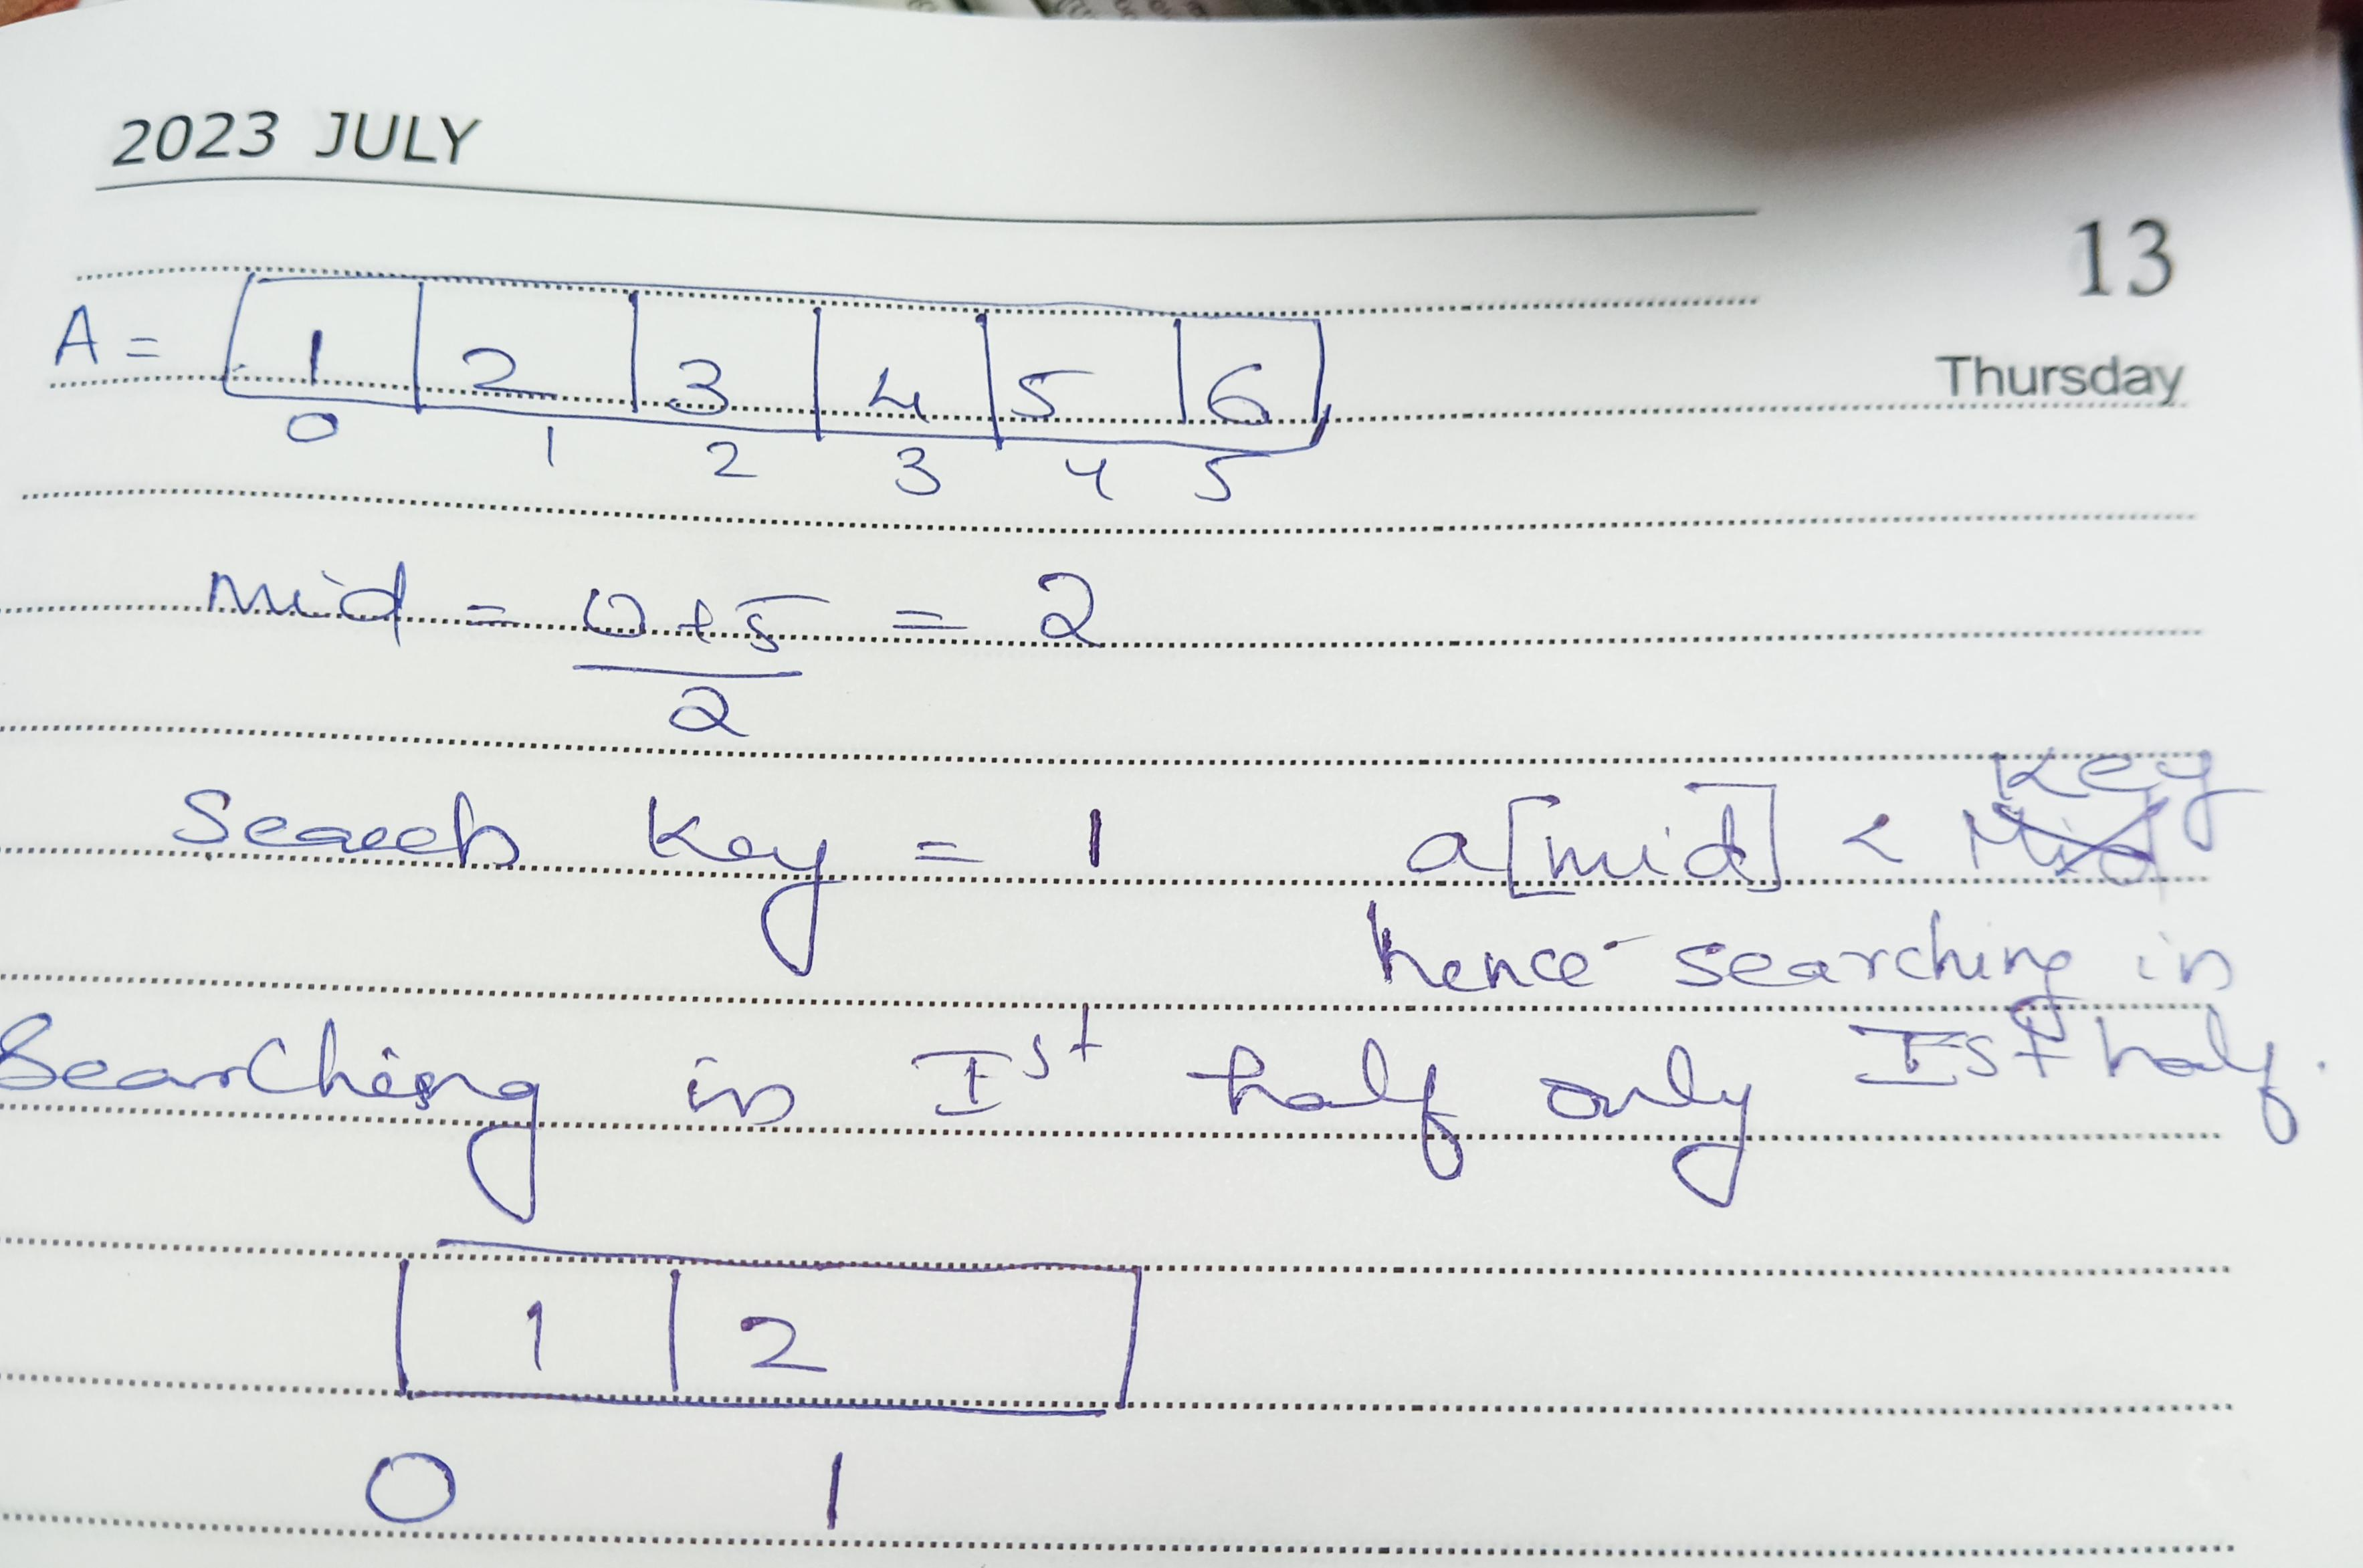 2023 JULY
13
Thursday
A = 1 2 3 4 5 6
0 1 2 3 4 5
mid = 0+5 = 2
2
Search Key = 1 a[mid] < Key
hence searching in
Ist half.
Searching in Ist half only
1 2
0 1